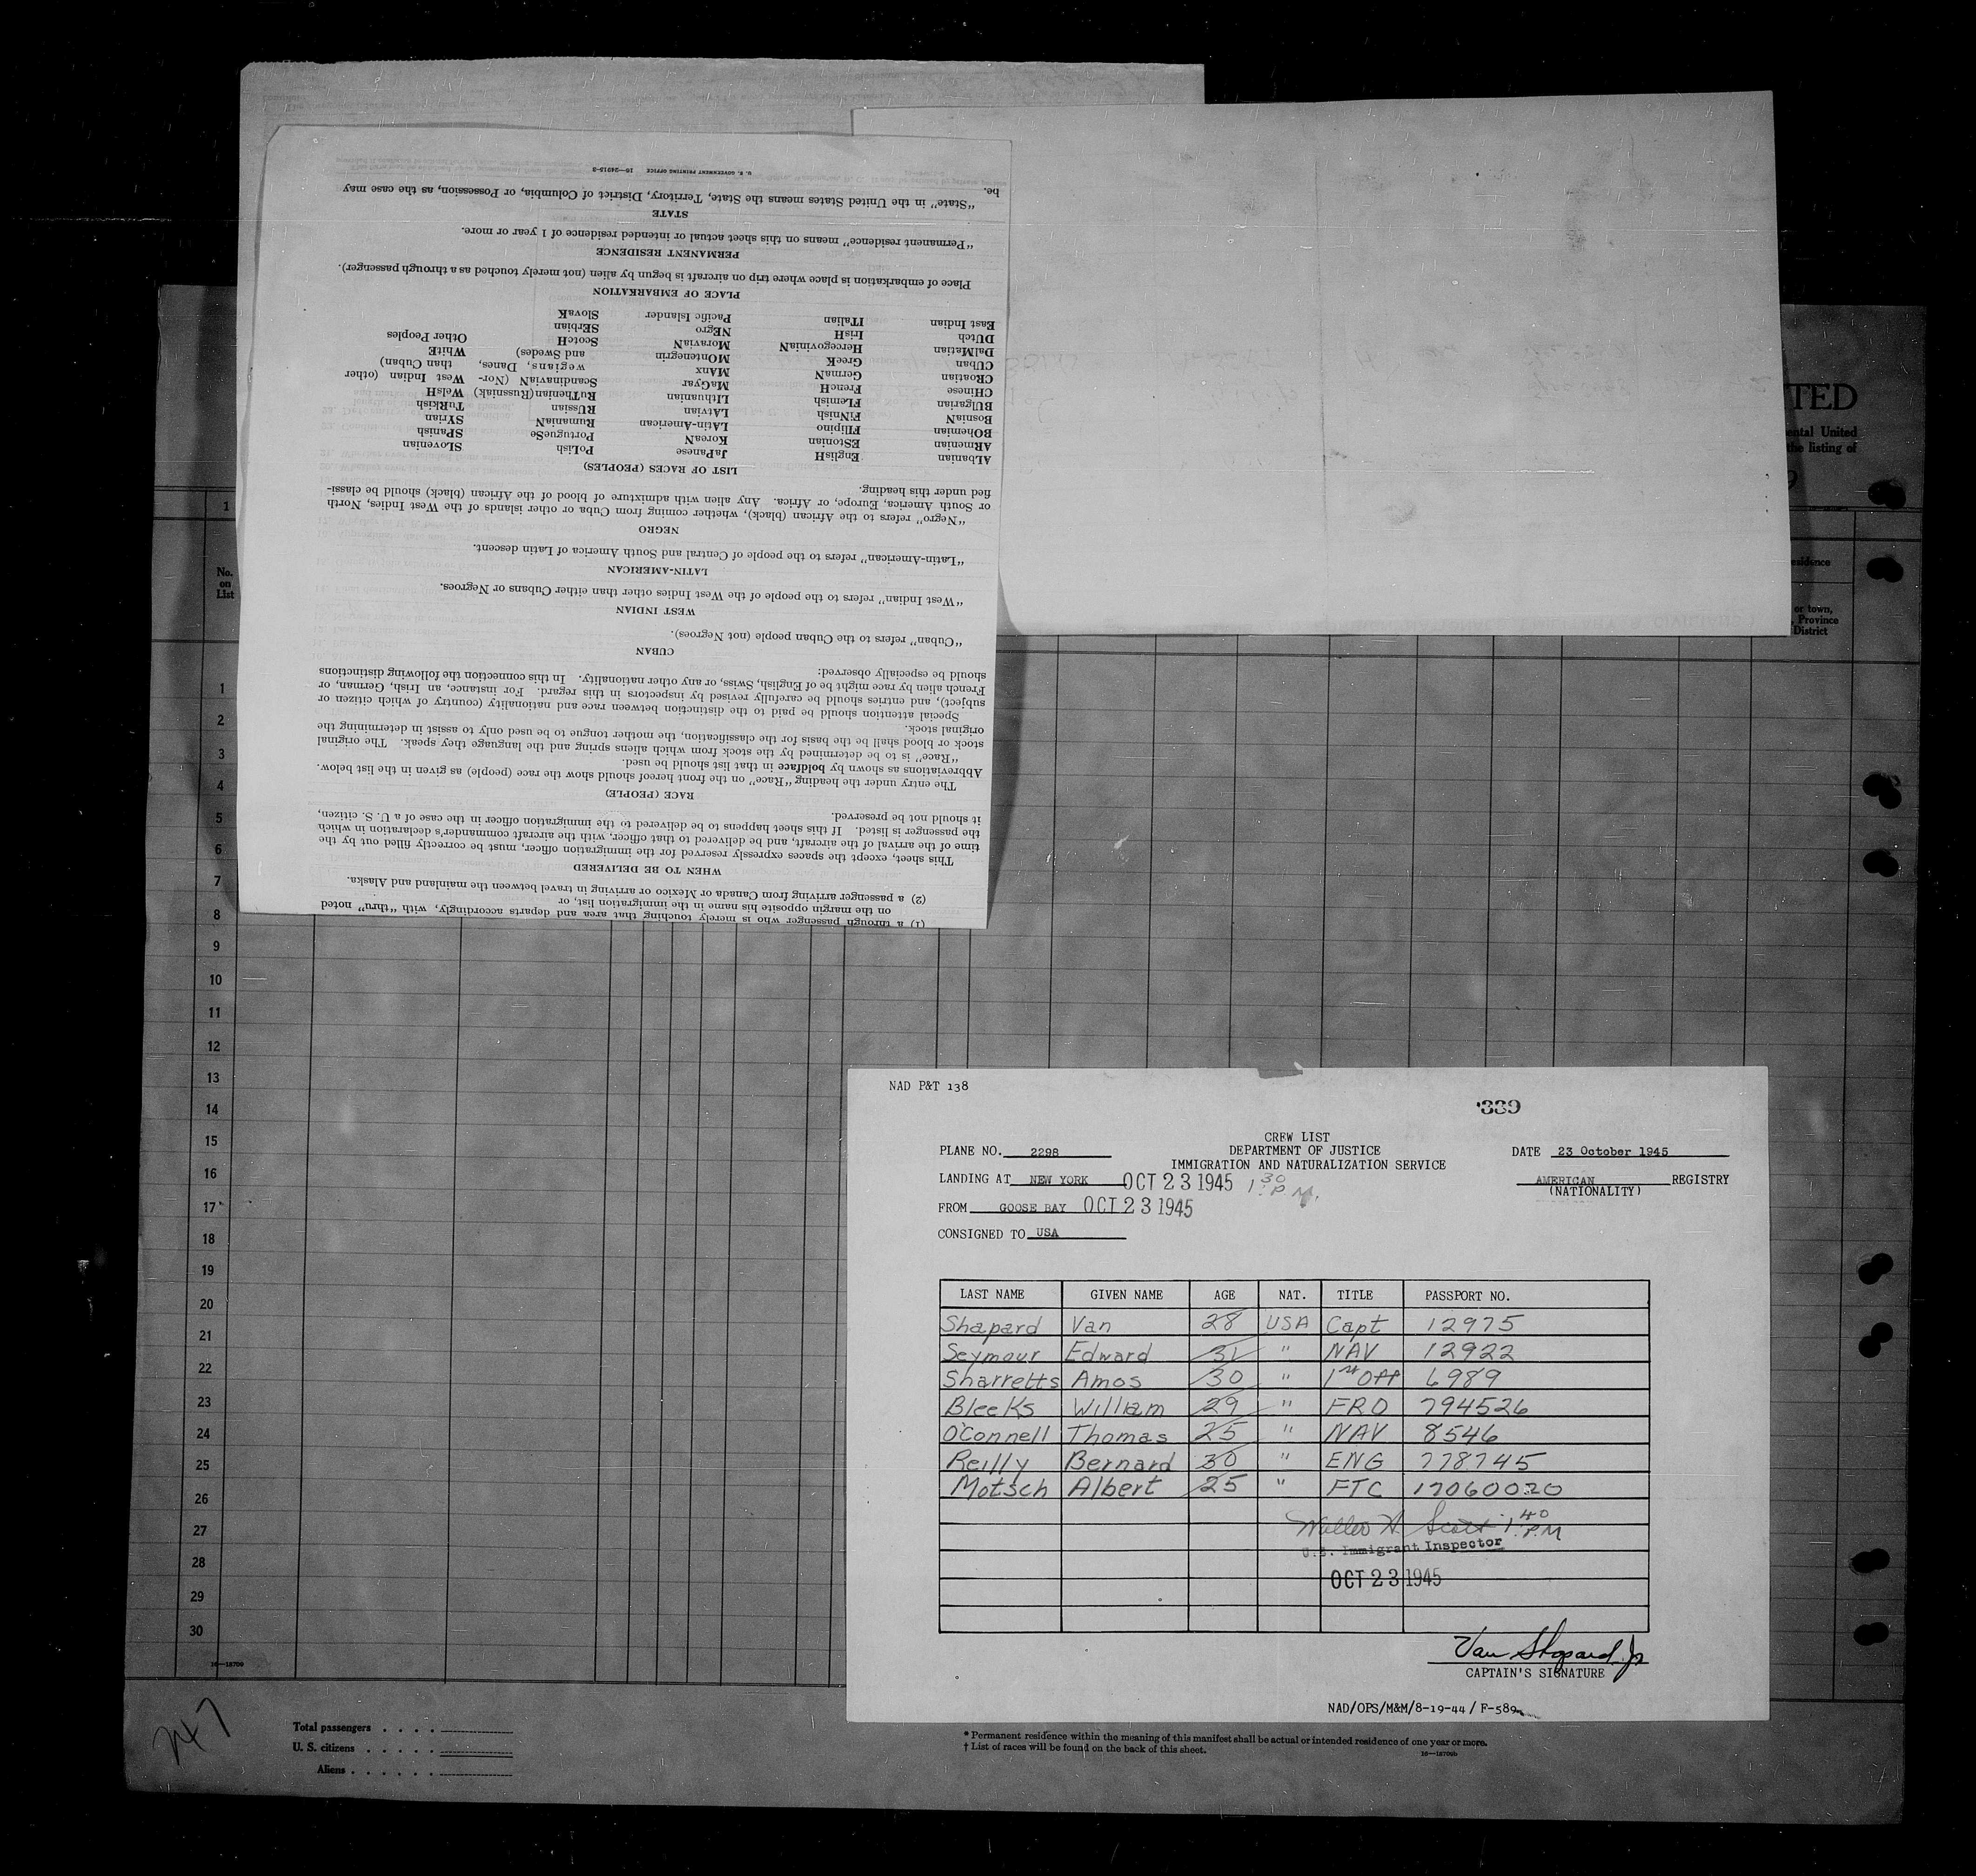 U. S. GOVERNMENT PRINTING OFFICE 16—24015-2
be.
"State" in the United States means the State, Territory, District of Columbia, or Possession, as the case may
STATE
"Permanent residence" means on this sheet actual or intended residence of 1 year or more.
PERMANENT RESIDENCE
Place of embarkation is place where trip on aircraft is begun by alien (not merely touched as a through passenger).
PLACE OF EMBARKATION
East Indian ITalian Pacific Islander SlovaK
DUtch IrisH NEgro SErbian Other Peoples
DalMatian HercegoviniaN MoraviaN ScotcH WhitE
CUban GreeK MOntenegrin and Swedes) than Cuban)
CRoatian GermaN MAnx wegians, Danes, West Indian (other
CHinese FrencH MaGyar ScandinaviaN (Nor- WelsH
BUlgarian FLemish LIthuanian RuThenian(Russniak) TuRKish
BosniaN FiNnish LAtvian RUssian SYrian
BOhemian FIlipino LAtin-American RumaniaN SPanish
ARmenian EStonian KoreaN PortugueSe SLOvenian
ALbanian EnglisH JaPanese PoLish
LIST OF RACES (PEOPLES)
fied under this heading.
or South America, Europe, or Africa. Any alien with admixture of blood of the African (black) should be classi-
"Negro" refers to the African (black), whether coming from Cuba or other islands of the West Indies, North
NEGRO
"Latin-American" refers to the people of Central and South America of Latin descent.
LATIN-AMERICAN
"West Indian" refers to the people of the West Indies other than either Cubans or Negroes.
WEST INDIAN
"Cuban" refers to the Cuban people (not Negroes).
CUBAN
should be especially observed:
French alien by race might be of English, Swiss, or any other nationality. In this connection the following distinctions
subject), and entries should be carefully revised by inspectors in this regard. For instance, an Irish, German, or
Special attention should be paid to the distinction between race and nationality (country of which citizen or
original stock.
stock or blood shall be the basis for the classification, the mother tongue to be used only to assist in determining the
"Race" is to be determined by the stock from which aliens spring and the language they speak. The original
Abbreviations as shown by boldface in that list should be used.
The entry under the heading "Race" on the front hereof should show the race (people) as given in the list below.
RACE (PEOPLE)
it should not be preserved.
the passenger is listed. If this sheet happens to be delivered to the immigration officer in the case of a U. S. citizen,
time of the arrival of the aircraft, and be delivered to that officer, with the aircraft commander's declaration in which
This sheet, except the spaces expressly reserved for the immigration officer, must be correctly filled out by the
WHEN TO BE DELIVERED
(2) a passenger arriving from Canada or Mexico or arriving in travel between the mainland and Alaska.
on the margin opposite his name in the immigration list, or
(1) a through passenger who is merely touching that area and departs accordingly, with "thru" noted
TED
ental United
the listing of
9
1
No.
on
List
esidence
or town,
, Province
District
1
2
3
4
5
6
7
8
9
10
11
12
13
14
15
16
17
18
19
20
21
22
23
24
25
26
27
28
29
30
16—18709
247
Total passengers . . . .
U. S. citizens . . . . .
Aliens . . . . . .
NAD P&T 138
339
CREW LIST
PLANE NO. 2298 DEPARTMENT OF JUSTICE DATE 23 October 1945
IMMIGRATION AND NATURALIZATION SERVICE
LANDING AT NEW YORK OCT 23 1945 1:30 P.M. AMERICAN REGISTRY
(NATIONALITY)
FROM GOOSE BAY OCT 23 1945
CONSIGNED TO USA
LAST NAME GIVEN NAME AGE NAT. TITLE PASSPORT NO.
Shapard Van 28 USA Capt 12975
Seymour Edward 31 " NAV 12922
Sharretts Amos 30 " 1st Off 6989
Bleeks William 29 " FRO 794526
O'Connell Thomas 25 " NAV 8546
Reilly Bernard 30 " ENG 778745
Motsch Albert 25 " FTC 17060020
Walter H. Scott 1:40 P.M
U.S. Immigrant Inspector
OCT 23 1945
Van Shapard Jr
CAPTAIN'S SIGNATURE
NAD/OPS/M&M/8-19-44 / F-589
* Permanent residence within the meaning of this manifest shall be actual or intended residence of one year or more.
† List of races will be found on the back of this sheet.
16—18709b